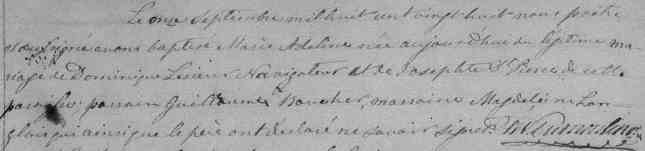 Le onze Septembre mil huit cent vingt huit nous prêtre
soussigné avons baptisé Marie Adeline née aujourd'hui du légitime ma-
riage de Dominique Navigateur et de Josephte St Pierre de cette
paroisse; parrain Guillaume Boucher, marraine Magdeleine Lan-
glois qui ainsi que le père ont déclaré ne savoir signer.